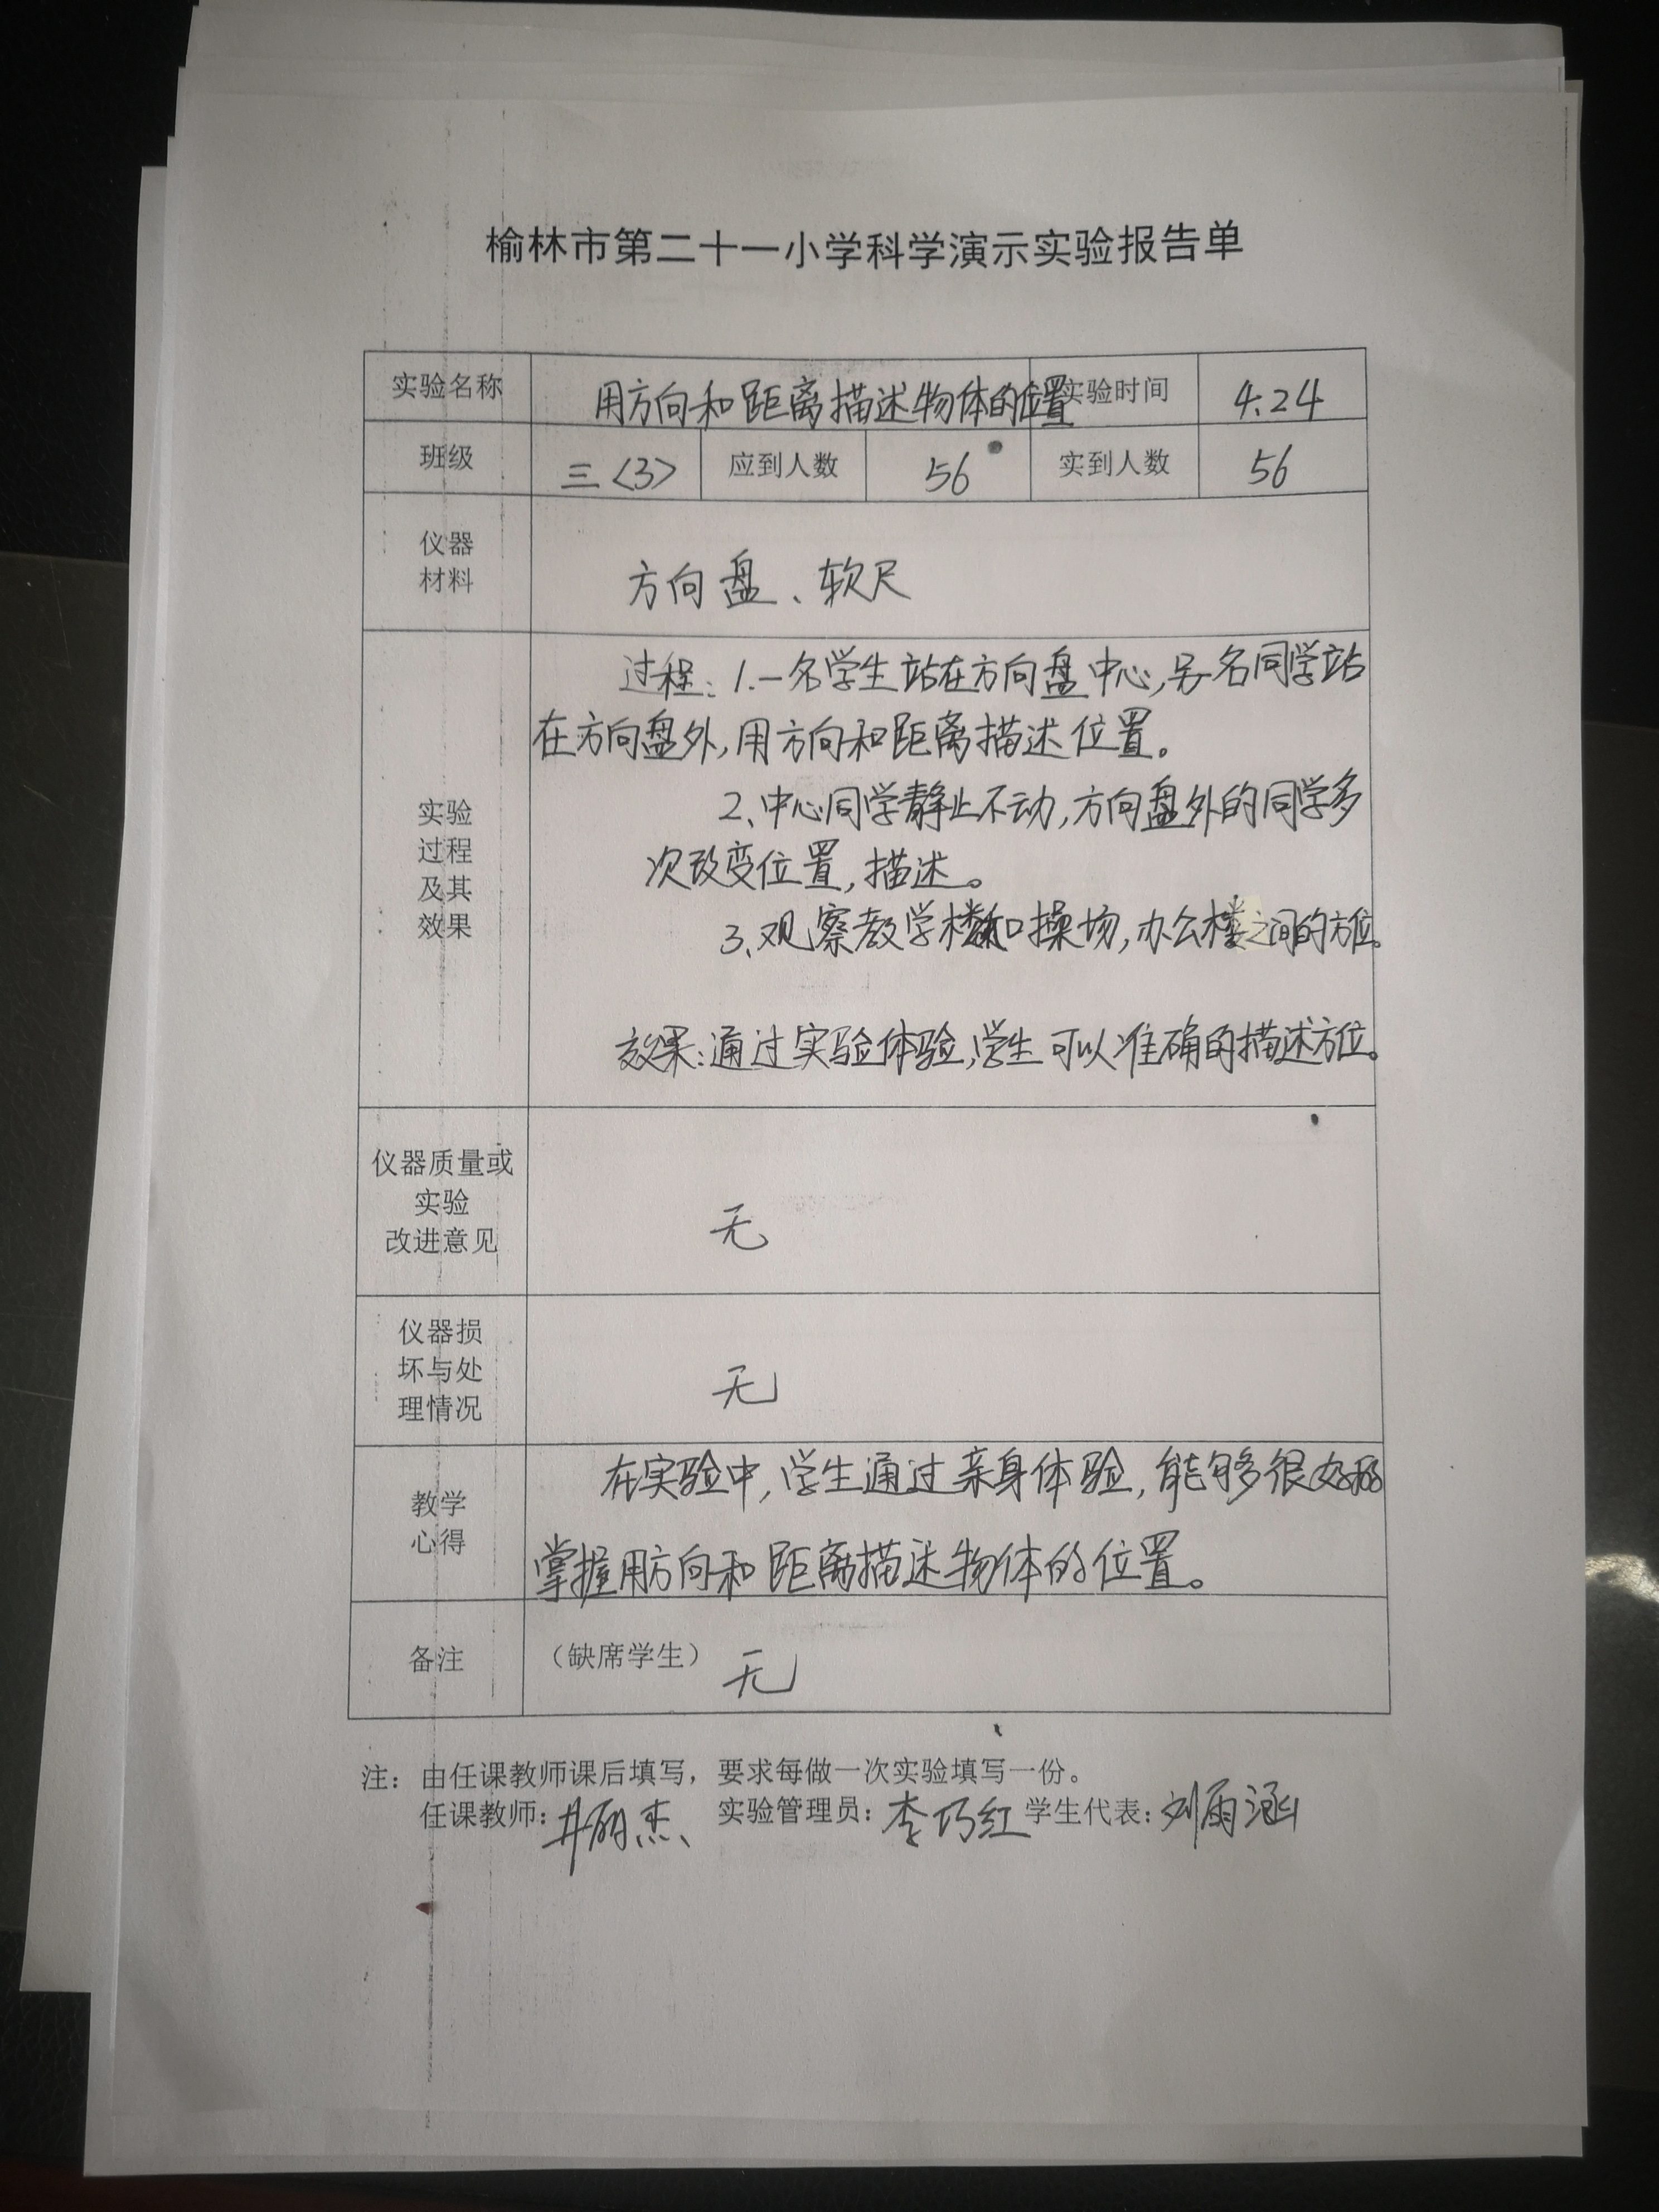 榆林市第二十一小学科学演示实验报告单
实验名称 用方向和距离描述物体的位置 实验时间 4.24
班级 三〈3〉 应到人数 56 实到人数 56
仪器
材料
方向盘、软尺
实验
过程
及其
效果
过程:1.一名学生站在方向盘中心,另一名同学站
在方向盘外,用方向和距离描述位置。
2、中心同学静止不动,方向盘外的同学多
次改变位置,描述。
3、观察教学楼和操场,办公楼之间的方位。
效果:通过实验体验,学生可以准确的描述方位。
仪器质量或
实验
改进意见
无
仪器损
坏与处
理情况
无
教学
心得
在实验中,学生通过亲身体验,能够很好的
掌握用方向和距离描述物体的位置。
备注 (缺席学生) 无
注: 由任课教师课后填写,要求每做一次实验填写一份。
任课教师: 井丽杰 实验管理员: 李巧红 学生代表: 刘雨涵